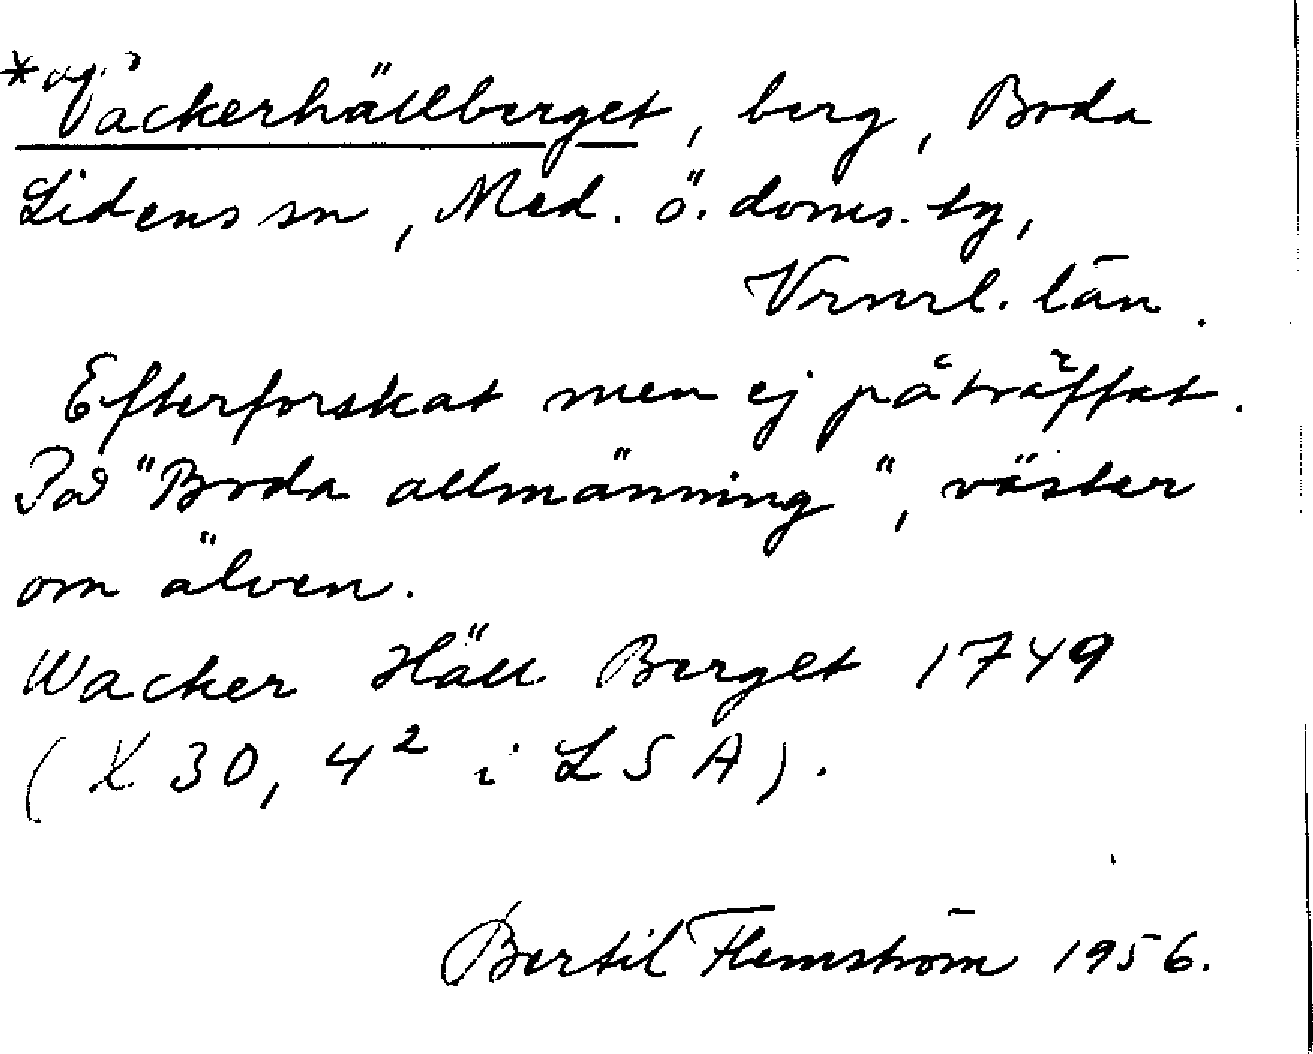 *Vackerhällberget, berg, Boda
Lidens sn, Med. ö. doms. by,
Vrnrl. län.
Efterforskat men ej påträffat.
På "Boda allmänning", väster
om älven.
Wacker Häll Berget 1749
(X 30, 4² i LSA).
Bertil Flemström 1956.